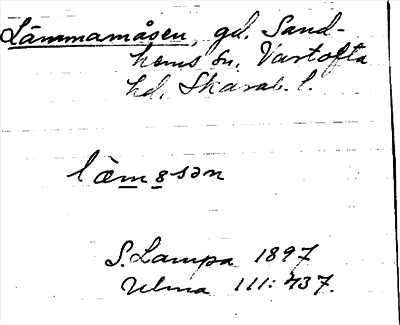 Lämmamåsen, gd. Sand-
hems sn. Vartofta
hd. Skarab. l.
læmssən
S. Lampa 1897
Ulma 111: 437.